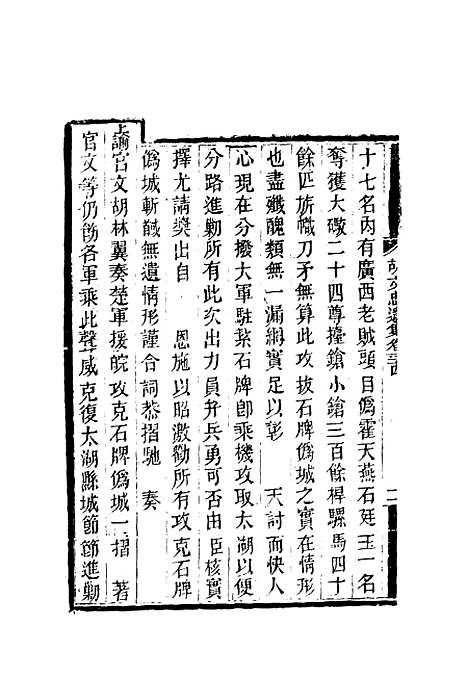 十七名內有廣西老賊頭目僞霍天燕石廷玉一名
奪獲大礮二十四尊擡鎗小鎗三百餘桿騾馬四十
餘匹旂幟刀矛無算此攻拔石牌僞城之實在情形
也盡殲醜類無一漏網實足以彰　天討而快人
心現在分撥大軍駐紮石牌卽乘機攻取太湖以便
分路進勦所有此次出力員弁兵勇可否由臣核實
擇尤請獎出自　恩施以昭激勸所有攻克石牌
僞城斬馘無遺情形謹合詞恭摺馳　奏
上諭官文胡林翼奏楚軍援皖攻克石牌僞城一摺　著
官文等仍飭各軍乘此聲威克復太湖縣城節節進勦
胡文忠遺集卷
二